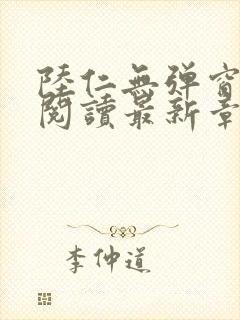 陸仁無彈窗
閱讀最新章
李仲道